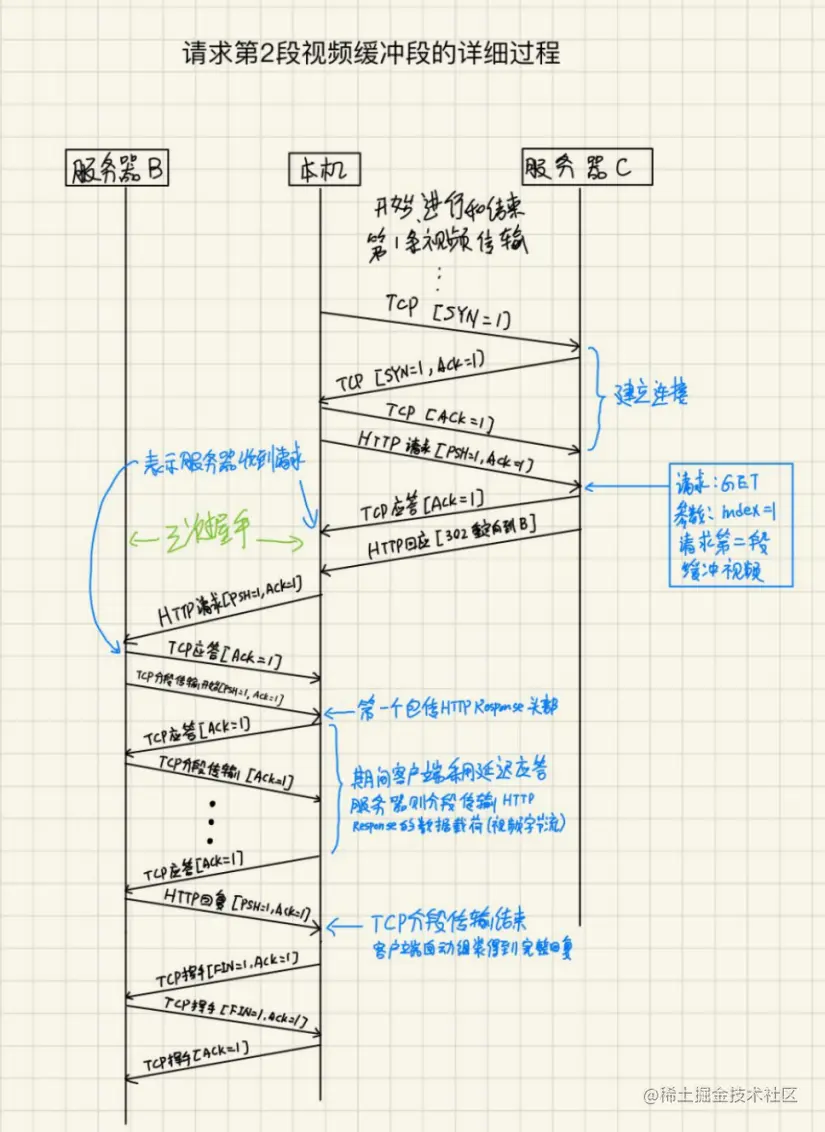 请求第2段视频缓冲段的详细过程
服务器B
本机
服务器C
开始、进行和结束
第1条视频传输
TCP [SYN=1]
TCP [SYN=1, ACK=1]
TCP [ACK=1]
建立连接
HTTP 请求[PSH=1, ACK=1]
表示服务器收到请求
请求:GET
参数: index=1
请求第二段
缓冲视频
TCP应答[Ack=1]
三次握手
HTTP回应[302重定向到B]
HTTP请求[PSH=1,Ack=1]
TCP应答[Ack=1]
TCP分段传输开始[PSH=1, Ack=1]
第一个包传HTTP Response头部
TCP应答[Ack=1]
TCP分段传输[Ack=1]
期间客户端采用延迟应答
服务器则分段传输HTTP
Response的数据载荷(视频字节流)
TCP应答[Ack=1]
HTTP回复[PSH=1,Ack=1]
TCP分段传输结束
客户端自动组装得到完整回复
TCP挥手[FIN=1,Ack=1]
TCP挥手[FIN=1,Ack=1]
TCP挥手[Ack=1]
@稀土掘金技术社区